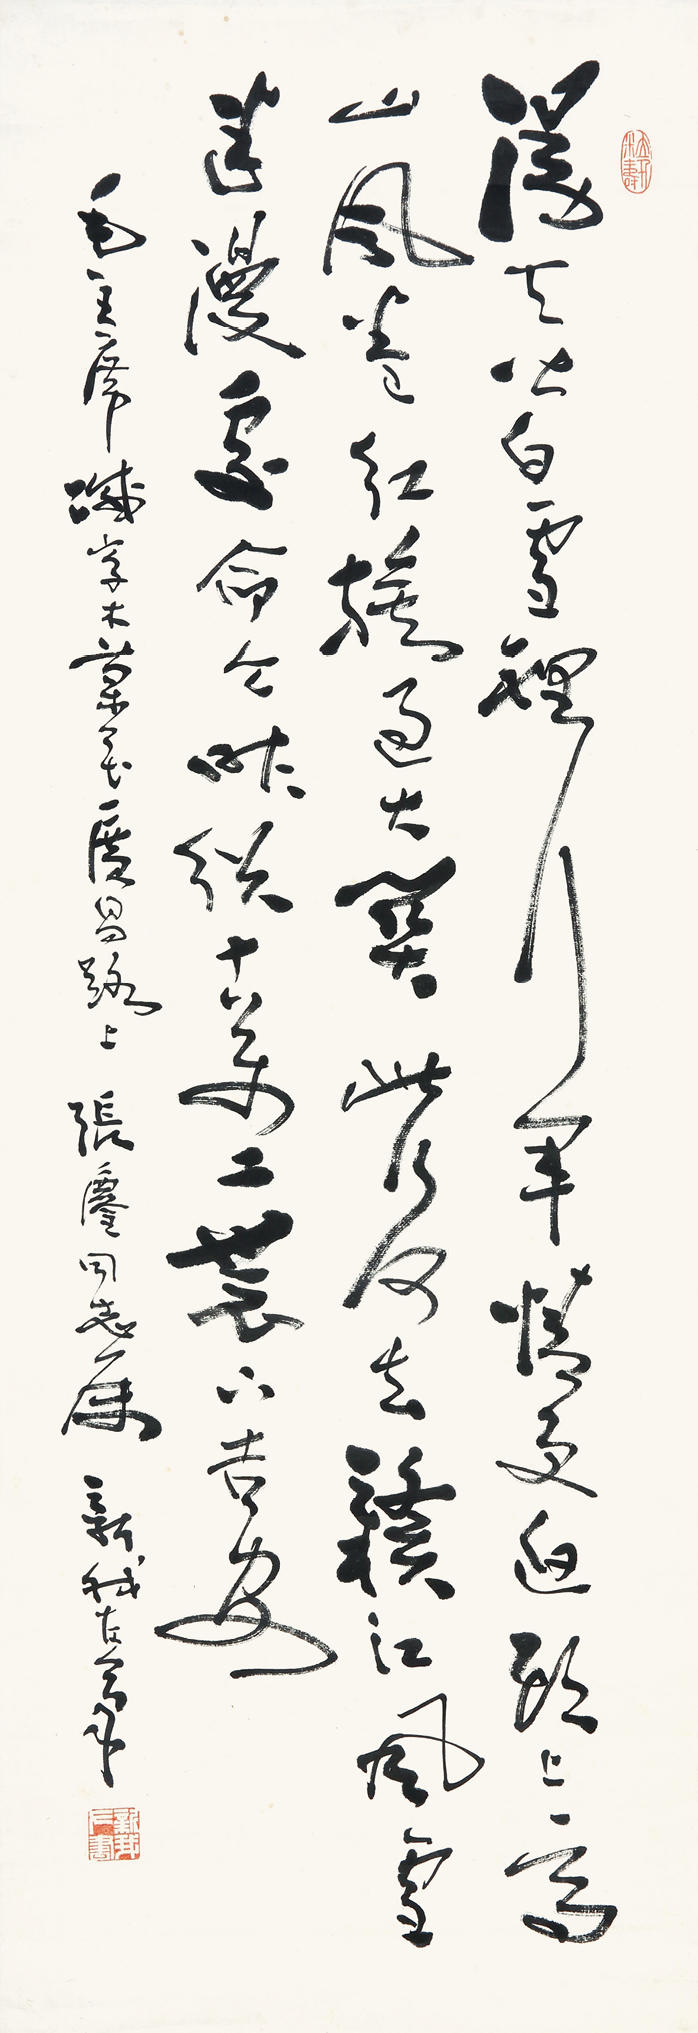 漫天皆白雪裡行軍情更迫頭上高
山風卷紅旗過大關此行何去贛江風雪
迷漫處命令昨頒十萬工農下吉安
毛主席減字木蘭花廣昌路上 張同志屬 新我左筆
新我左書